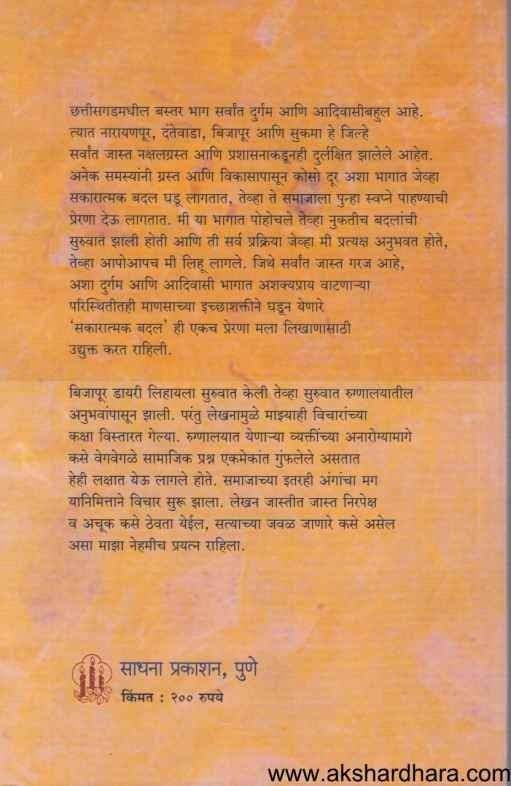 छत्तीसगडमधील बस्तर भाग सर्वांत दुर्गम आणि आदिवासीबहुल आहे.
त्यात नारायणपूर, दंतेवाडा, बिजापूर आणि सुकमा हे जिल्हे
सर्वांत जास्त नक्षलग्रस्त आणि प्रशासनाकडूनही दुर्लक्षित झालेले आहेत.
अनेक समस्यांनी ग्रस्त आणि विकासापासून कोसो दूर अशा भागात जेव्हा
सकारात्मक बदल घडू लागतात, तेव्हा ते समाजाला पुन्हा स्वप्ने पाहण्याची
प्रेरणा देऊ लागतात. मी या भागात पोहोचले तेव्हा नुकतीच बदलांची
सुरुवात झाली होती आणि ती सर्व प्रक्रिया जेव्हा मी प्रत्यक्ष अनुभवत होते,
तेव्हा आपोआपच मी लिहू लागले. जिथे सर्वांत जास्त गरज आहे,
अशा दुर्गम आणि आदिवासी भागात अशक्यप्राय वाटणाऱ्या
परिस्थितीतही माणसाच्या इच्छाशक्तीने घडून येणारे
'सकारात्मक बदल' ही एकच प्रेरणा मला लिखाणासाठी
उद्युक्त करत राहिली.
बिजापूर डायरी लिहायला सुरुवात केली तेव्हा सुरुवात रुग्णालयातील
अनुभवांपासून झाली. परंतु लेखनामुळे माझ्याही विचारांच्या
कक्षा विस्तारत गेल्या. रुग्णालयात येणाऱ्या व्यक्तींच्या अनारोग्यामागे
कसे वेगवेगळे सामाजिक प्रश्न एकमेकांत गुंफलेले असतात
हेही लक्षात येऊ लागले होते. समाजाच्या इतरही अंगांचा मग
यानिमित्ताने विचार सुरू झाला. लेखन जास्तीत जास्त निरपेक्ष
व अचूक कसे ठेवता येईल, सत्याच्या जवळ जाणारे कसे असेल
असा माझा नेहमीच प्रयत्न राहिला.
साधना प्रकाशन, पुणे
किंमत : २०० रुपये
www.akshardhara.com